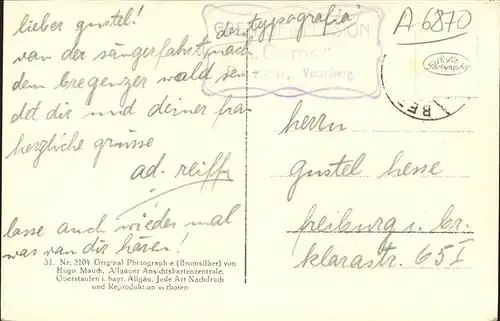 lieber gustel!
von der sängerfahrt nach
der "typografia"
dem bregenzer wald sen
det dir und deiner frau
herzliche grüsse
ad. reiff
lasse auch wieder mal
was von dir hören!
31. Nr. 3104 Original Photographie (Bromsilber) von
Hugo Mauch, Allgäuer Ansichtskartenzentrale,
Oberstaufen i. bayr. Allgäu. Jede Art Nachdruck
und Reproduktion verboten
PENSION
Vorarlberg
A 6870
Echte
Photographie
BE
herrn
gustel hesse
freiburg i. br.
klarastr. 65 I